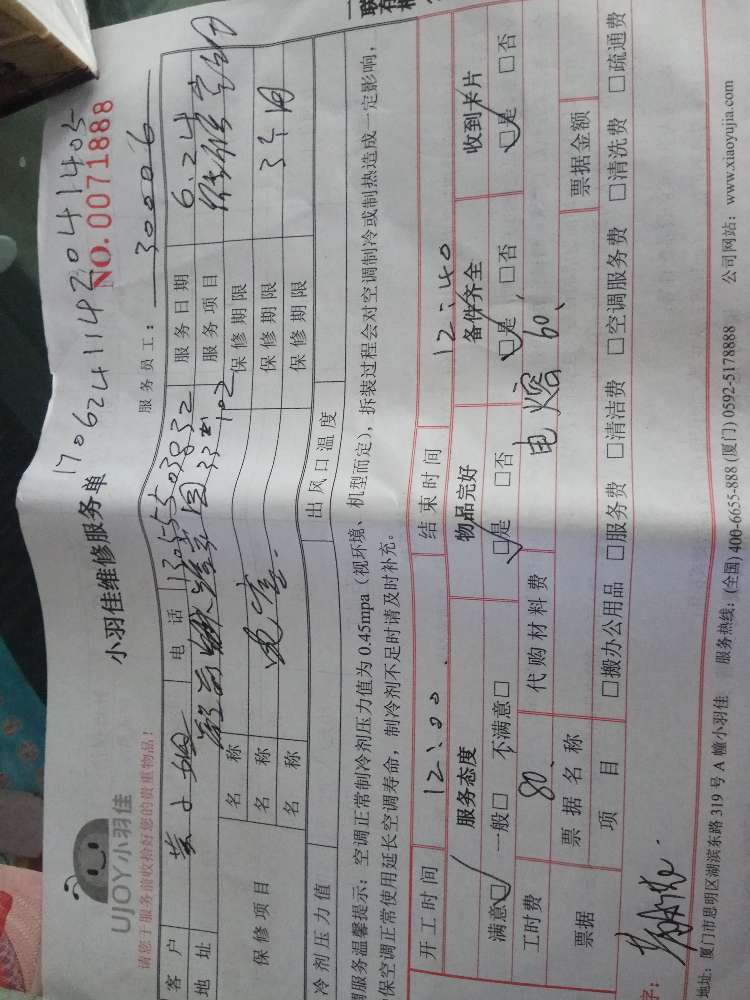 一联
UJOY小羽佳
小羽佳维修服务单
170624114204 1405
NO.0071888
请您于服务前收拾好您的贵重物品!
服务员工: 300006
客户 黄小姐 电话 13055503832 服务日期 6.24
地址 33 402 服务项目
保修项目
名称 保修期限
名称 电 保修期限 3个月
名称 保修期限
冷剂压力值 出风口温度
调服务温馨提示: 空调正常制冷剂压力值为 0.45mpa (视环境、机型而定), 拆装过程会对空调制冷或制热造成一定影响,
保空调正常使用延长空调寿命, 制冷剂不足时请及时补充。
开工时间 12:00 结束时间 12:40
服务态度 物品完好 备件齐全 收到卡片
满意☑ 一般□ 不满意□ ☑是 □否 ☑是 □否 ☑是 □否
工时费 80、 代购材料费 电熔 60、
票据 票据名称 票据金额
项目 □搬办公用品 □服务费 □清洁费 □空调服务费 □清洗费 □疏通费
字:
地址: 厦门市思明区湖滨东路 319 号 A 幢小羽佳 服务热线: (全国) 400-6655-888 (厦门) 0592-5178888 公司网站: www.xiaoyujia.com